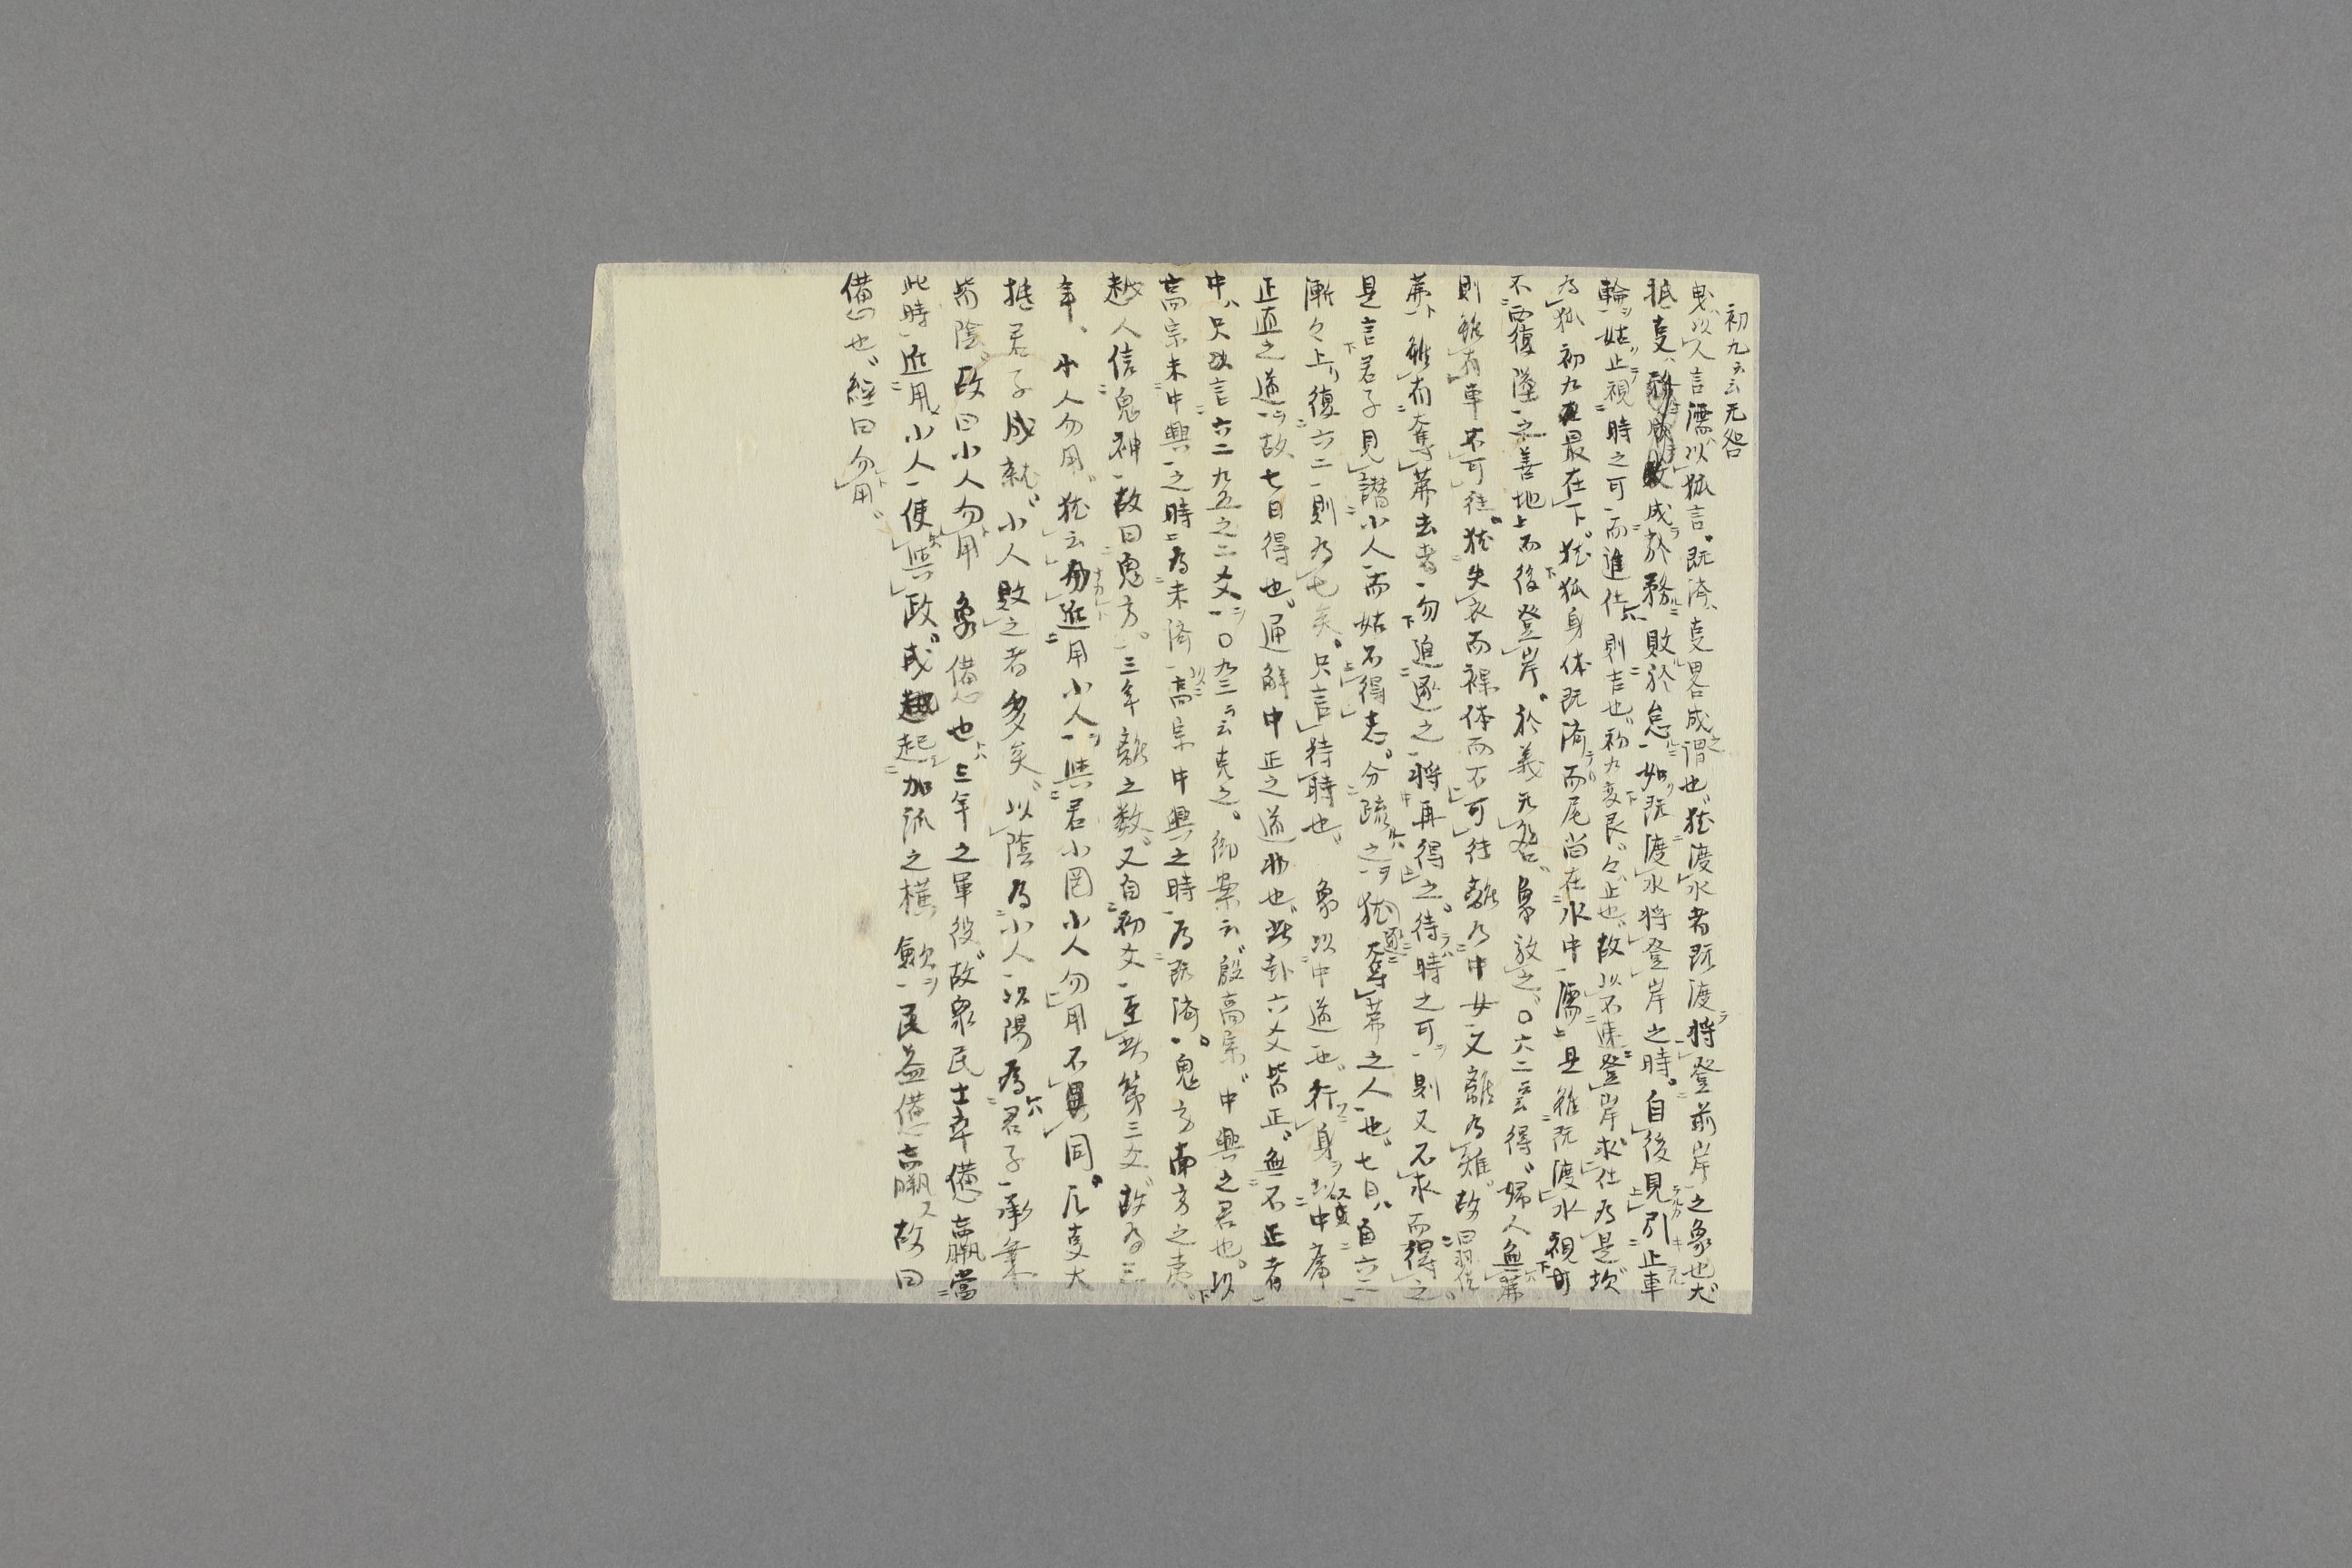 初九ヲ云无咎
曳以人言濡以狐言既済㕝畧成之謂也猶渡水者既渡将登前岸之象也大
抵㕝成於務敗於怠如既渡水将登岸之時自後見引止車
輪姑止視時之可而進仕則吉也初九変艮々止也故以不速登岸求仕為是坎
為狐初九最在下猶狐身体既済而尾尚在水中濡是雖既渡水視可
不而復墜之善地上而後登岸於義无咎象放之〇六二云得婦人無茀
則雖有車不可往猶失衣而裸体而不可往離為中女又離為雉故曰羽
茀雖有奪茀去者勿追逐之将再得之待時之可則又不求而得之
是言君子見譖小人而姑不得志分疏之猶逐奪茀之人也七日自六二
漸々上復六二則為七矣只言待時也 象以中道也行身以中庸
正直之道故七日得也通解中正之道也此卦六爻皆正無不正者
中只言六二九五之二爻〇九三云克之御案云殷高宗中興之君也以
高宗未中興之時為未済高宗中興之時為既済鬼方南方之夷
越人信鬼神故曰鬼方三年離之数又自初爻至此第三爻故為三
年、小人勿用猶云勿近用小人與君小罔小人勿用不異同凡㕝大
抵君子成就小人敗之者多矣以陰為小人以陽為君子承乗
皆陰故曰小人勿用 象備也三年之軍役故衆民士卒憊羸當
此時近用小人使與政或起加派之横歛民益憊羸故曰
憊也経曰勿用